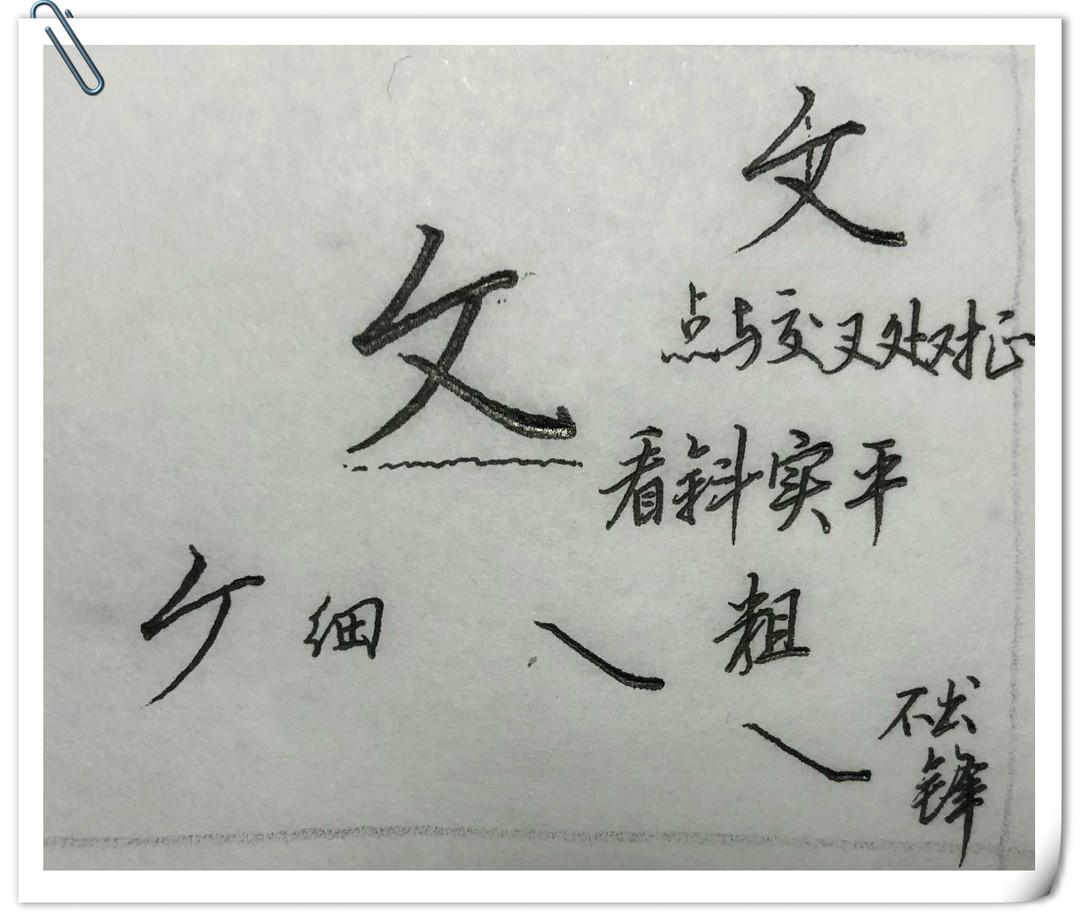 文
文
点与交叉处对正
看斜实平
细
粗
不出
锋